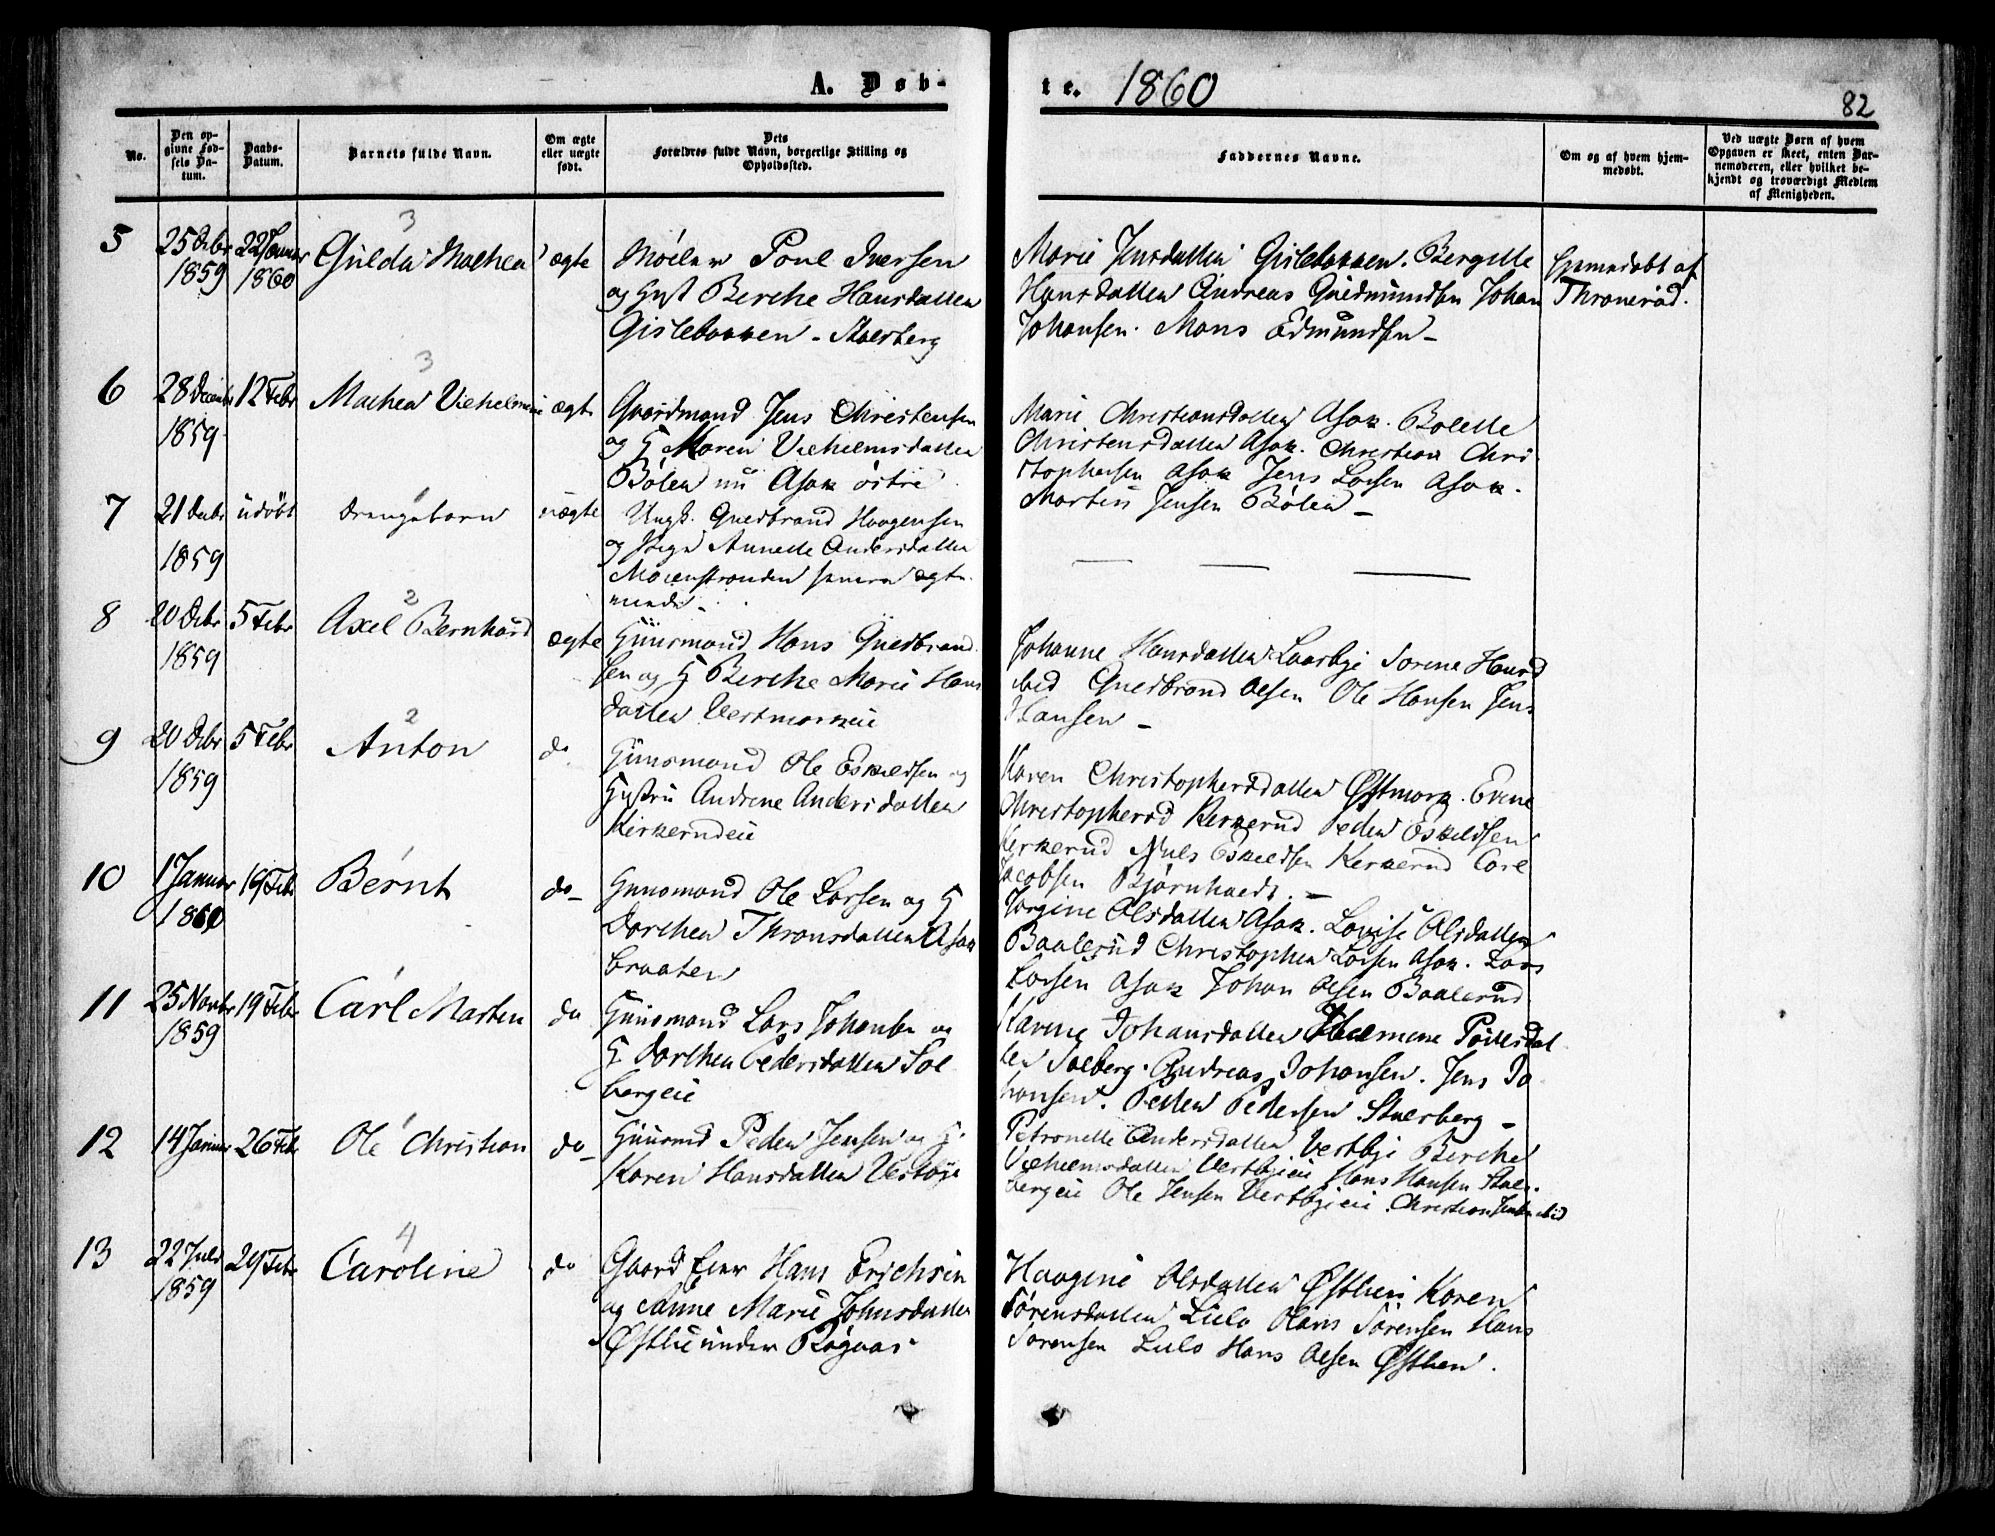 A. Døb-
te. 1860
82
No.
Den opgivne Fødsels Datum.
Daabs-Datum.
Barnets fulde Navn.
Om ægte eller uægte født.
Dets Forældres fulde Navn, borgerlige Stilling og Opholdssted.
Faddernes Navne.
Om og af hvem hjemmedøbt.
Ved uægte Børn af hvem Opgaven er skeet, enten Barnemoderen, eller hvilket bekjendt og troværdigt Medlem af Menigheden.
3
5 25 Dcbr 1859 22 Januar 1860 Gulda Mathea ægte
Poul Iversen
og Hust Berthe Hansdatter
Gislebakken - Skaerberg
Marie Jensdatter Gislebakken. Bergitte
Hansdatter Andreas Gudmundsen Johan
Johansen. Mons Edmundsen -
Hjemmedøbt af
Thronerød.
3
6 28 Decmbr 1859 12 Febr Mathea Vilhelmine ægte
Gaardmand Jens Christensen
og H Maren Vilhelmsdatter
Bølen nu Asak østre
Marie Christiansdatter Asak. Bolette
Christensdatter Asak. Christian Chri
stophersen Asak Jens Larsen Asak.
Martin Jensen Bølen -
7 21 Dcbr 1859 udøbt Drengebarn uægte
Ungk. Gudbrand Haagensen
og Pige Annette Andersdatter
Mosenstranden senere ægte
viede -
2
8 20 Dcbr 1859 5 Febr Axel Bernhard ægte
Huusmand Hans Gudbrand
sen og H Berthe Marie Hans
datter Vestmarkeie
Johanne Hansdatter Laasbye Sorine Hansd
ibid Gudbrand Olsen Ole Hansen Jens
Hansen -
2
9 20 Dcbr 1859 5 Febr Anton do
Huusmand Ole Eskildsen og
Hustru Andrine Andersdatter
Kirkerudeie
Karen Christophersdatter Østmork. Evine
Christophersd Kirkerud Peder Eskildsen
Kirkerud Niels Eskildsen Kirkerud Carl
Jacobsen Bjørnholdt. -
10 1 Januar 1860 19 Feb Bernt do -
Huusmand Ole Larsen og H
Dorthea Thronsdatter Asak
braaten
Jorgine Olsdatter Asak. Lovise Olsdatter
Baalerud Christopher Larsen Asak. Lars
Larsen Asak Johan Olsen Baalerud
11 25 Novbr 1859 19 Feb Carl Marten do
Huusmand Lars Johansen og
H Dorthea Pedersdatter Sol
bergeie
Karine Johansdatter Helmine Poulsdat
ter Solberg. Andreas Johansen. Jens Jo
hansen. Petter Pedersen Skaerberg -
12 14 Januar 26 Feb Ole Christian do -
Huusmd Peder Jensen og H.
Karen Hansdatter Vestbye
Petronelle Andersdatter Vestbye Berthe
Vilhelmsdatter Vestbyeie Hans Hansen Skaer
bergeie Ole Jensen Vestbyeie. Christian Jensen ibid
4
13 22 Juli 1859 29 Febr Caroline do
Gaard Eier Hans Erichsen
og Anne Marie Johnsdatter
Østlie under Ragnas
Haagine Olsdatter Østlien Karen
Sörensdatter Lielo Hans Sörensen Hans
Sorensen Lielo Hans Olsen Østlien.